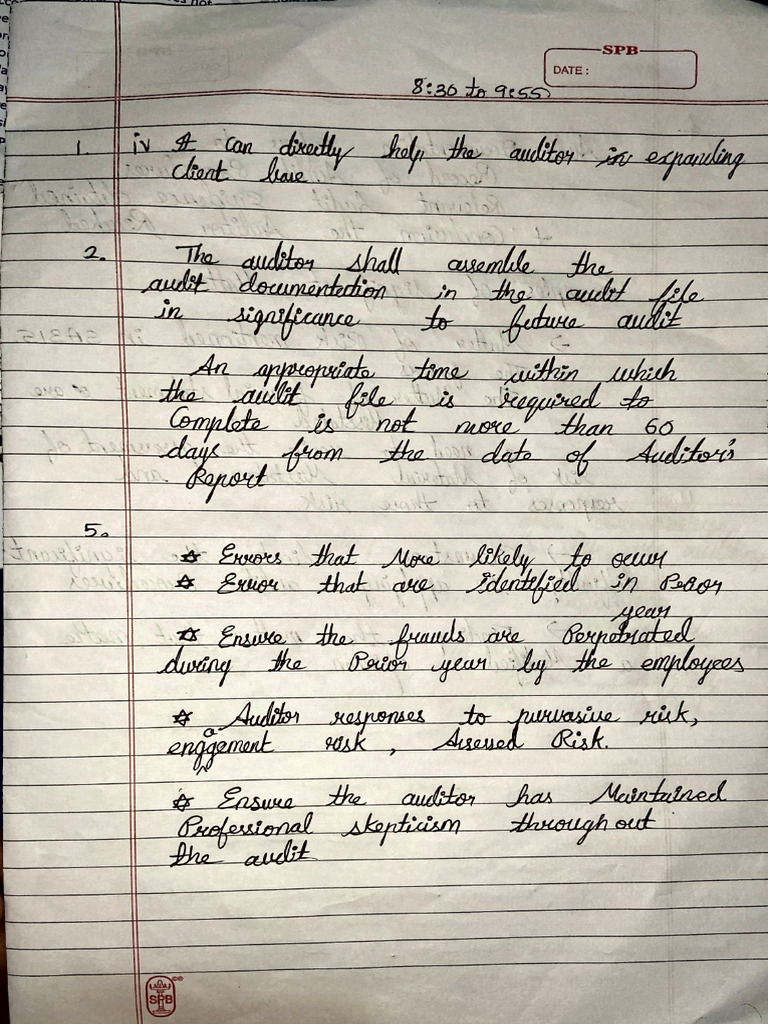 SPB
DATE :
8:30 to 9:55
1. iv It can directly help the auditor in expanding
client base.
2. The auditor shall assemble the
audit documentation in the audit file
in significance to future audit
An appropriate time within which
the audit file is required to
Complete is not more than 60
days from the date of Auditor's
Report
5.
☆ Errors that More likely to occur
☆ Error that are identified in Perior
year
☆ Ensure the frauds are Perpetrated
during the Perior year by the employees
☆ Auditor responses to purvasive risk,
engagement risk, Assessed Risk.
☆ Ensure the auditor has Maintained
Professional skepticism throughout
the audit
SPB